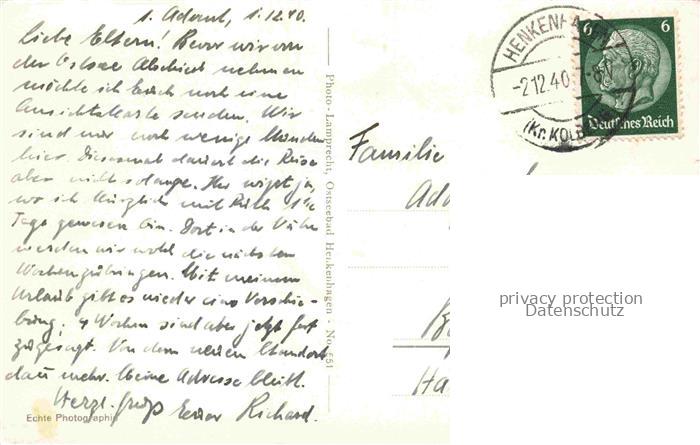 1. Advent, 1.12.40.
Liebe Eltern! Bevor wir von
der Ostsee Abschied nehmen
möchte ich Euch noch eine
Ansichtskarte senden. Wir
sind nur noch wenige Stunden
hier. Diesesmal dauert die Reise
aber nicht so lange. Ihr wißt ja,
wo ich kürzlich mit Ruth 1½
Tage gewesen bin. Dort in der Nähe
werden wir wohl die nächsten
Wochen zubringen. Mit meinem
Urlaub gibt es wieder eine Verschie-
bung; 4 Wochen sind aber jetzt fest
zugesagt. Von dem neuen Standort
dann mehr. Meine Adresse bleibt.
Herzl. Gruß Euer Richard.
Echte Photographie
Photo-Lamprecht, Ostseebad Henkenhagen - No. 551
HENKENHAGEN
-2.12.40
(Kr. KOLB
6 6
Deutsches Reich
Familie
Ado
Ha
privacy protection
Datenschutz